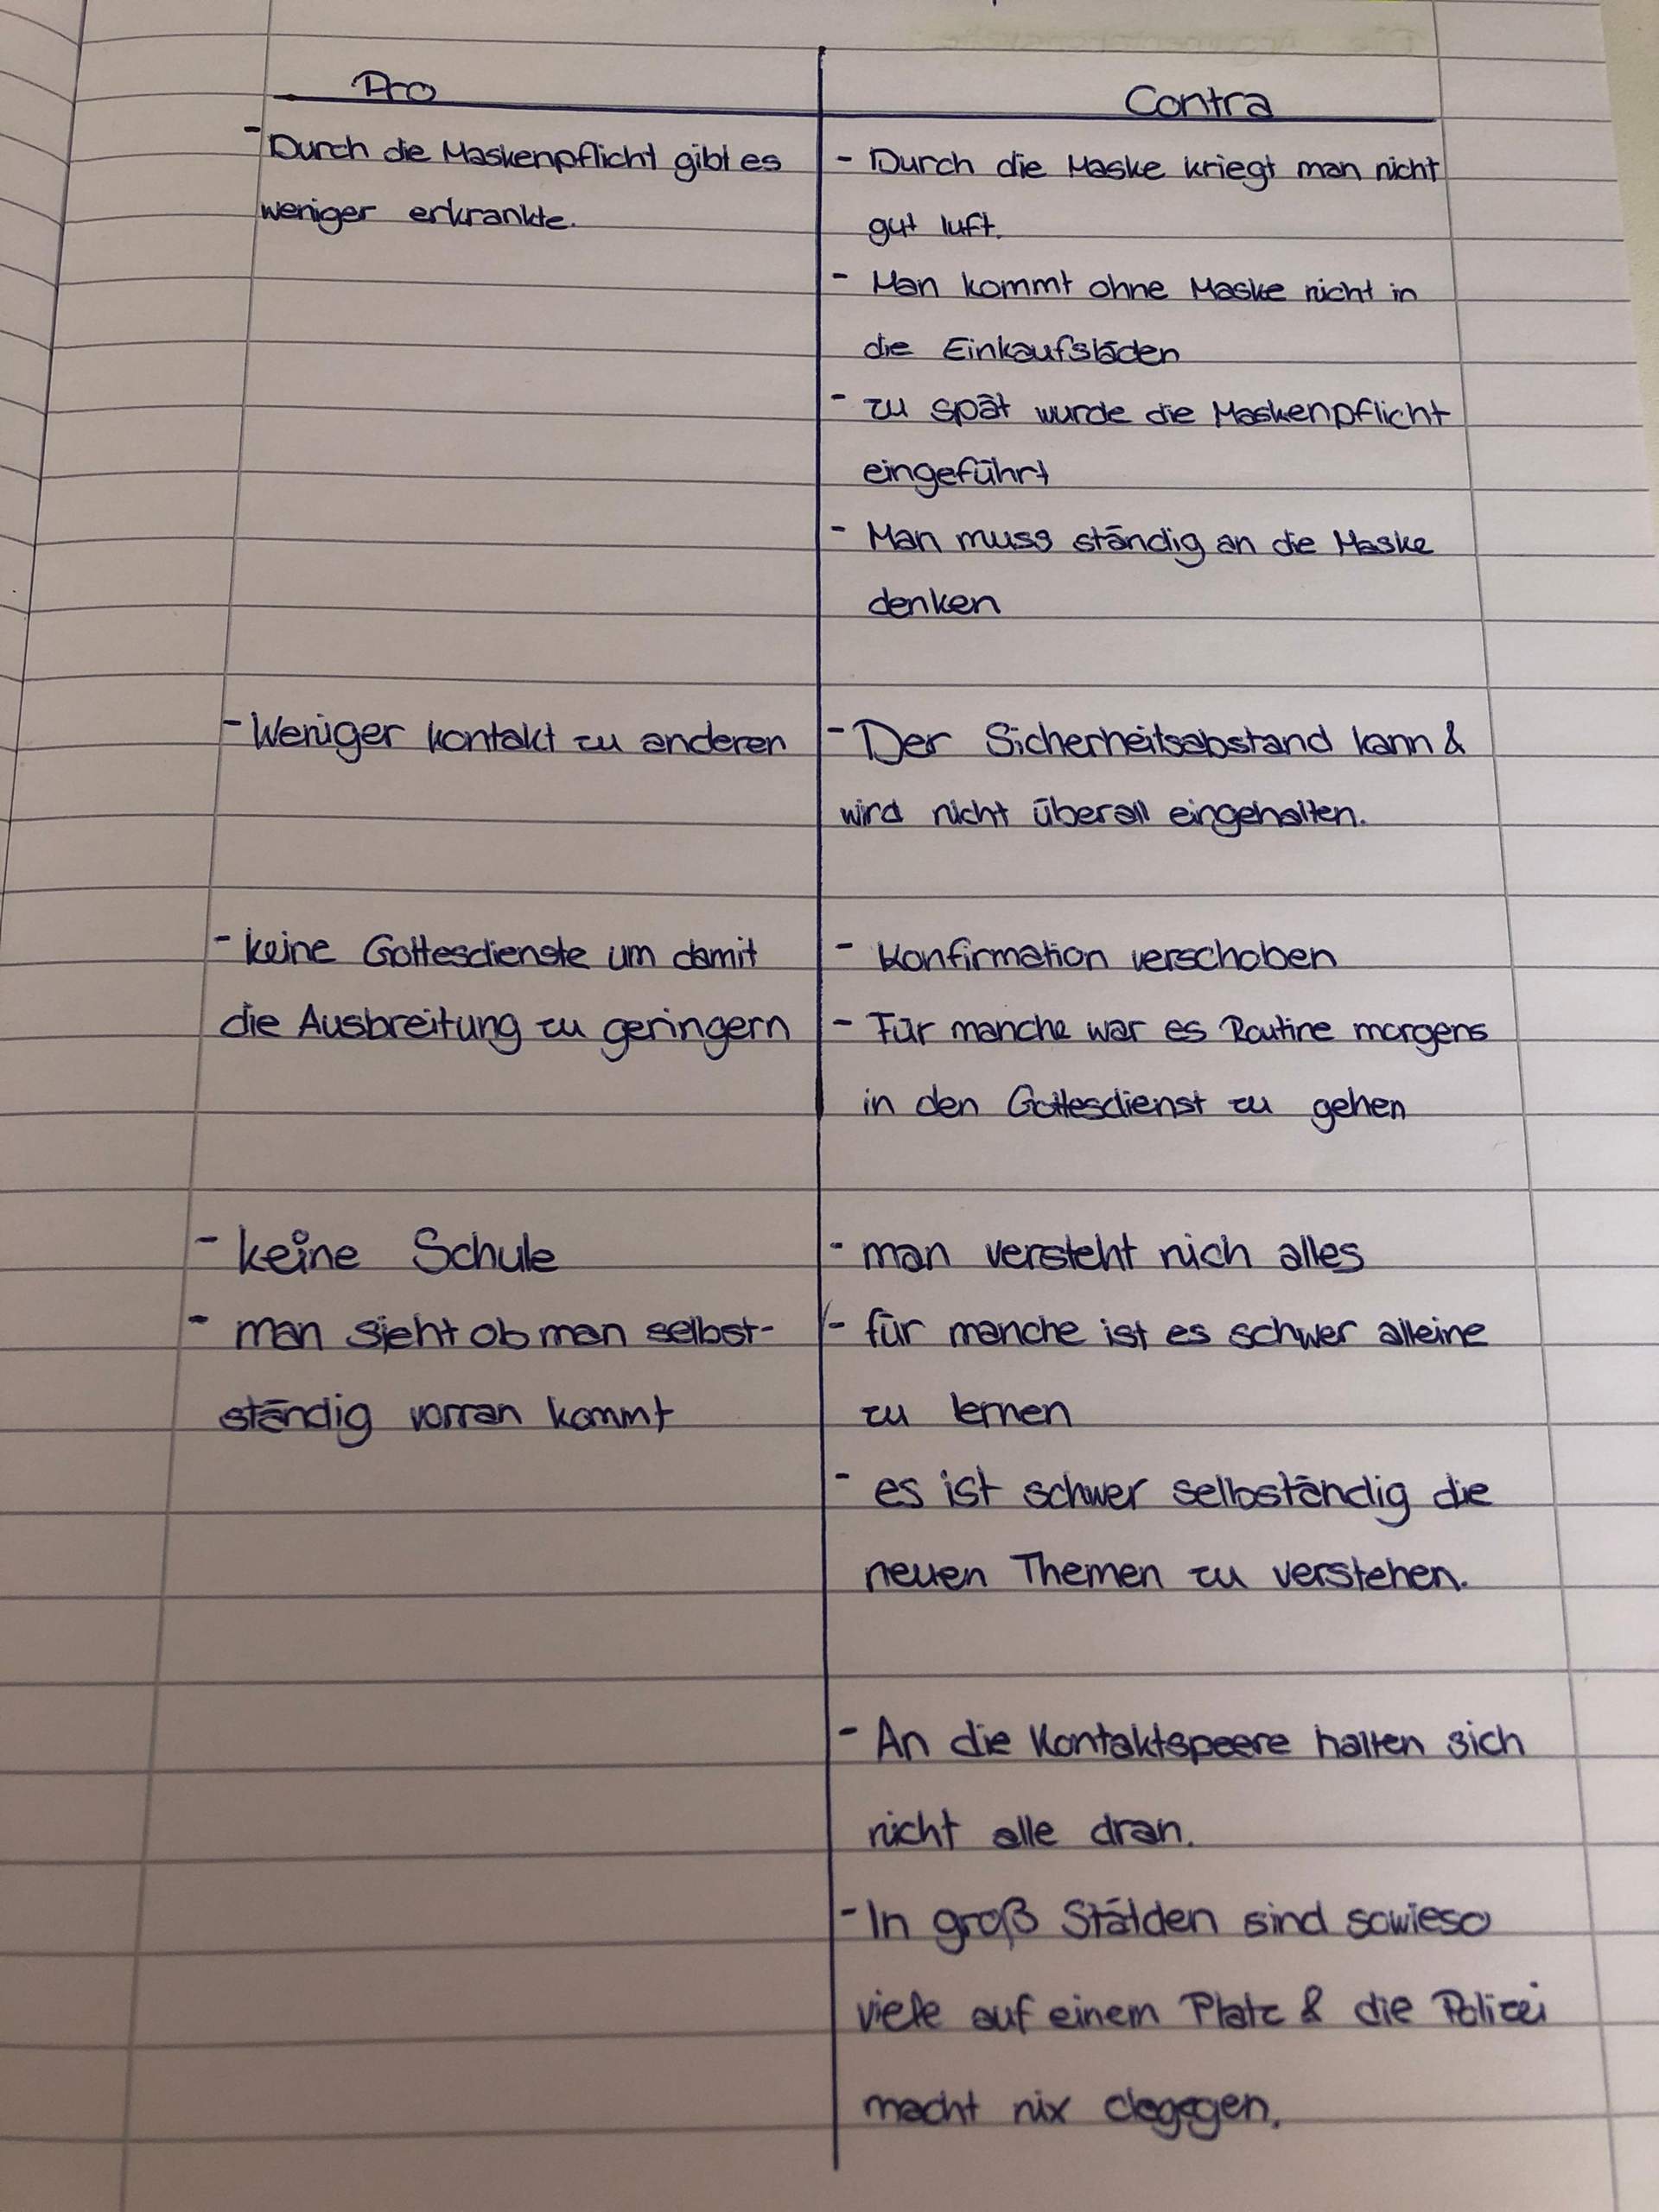 Pro
- Durch die Maskenpflicht gibt es
weniger erkrankte.
- Weniger kontakt zu anderen
- keine Gottesdienste um damit
die Ausbreitung zu geringern
- keine Schule
- man sieht ob man selbst-
ständig vorran kommt
Contra
- Durch die Maske kriegt man nicht
gut luft.
- Man kommt ohne Maske nicht in
die Einkaufsläden
- zu spät wurde die Maskenpflicht
eingeführt
- Man muss ständig an die Maske
denken
- Der Sicherheitsabstand kann &
wird nicht überall eingehalten.
- Konfirmation verschoben
- Für manche war es Routine morgens
in den Gottesdienst zu gehen
- man versteht nich alles
- für manche ist es schwer alleine
zu lernen
- es ist schwer selbständig die
neuen Themen zu verstehen.
- An die Kontaktspeere halten sich
nicht alle dran.
- In groß Stätden sind sowieso
viele auf einem Platz & die Polizei
macht nix dagegen.